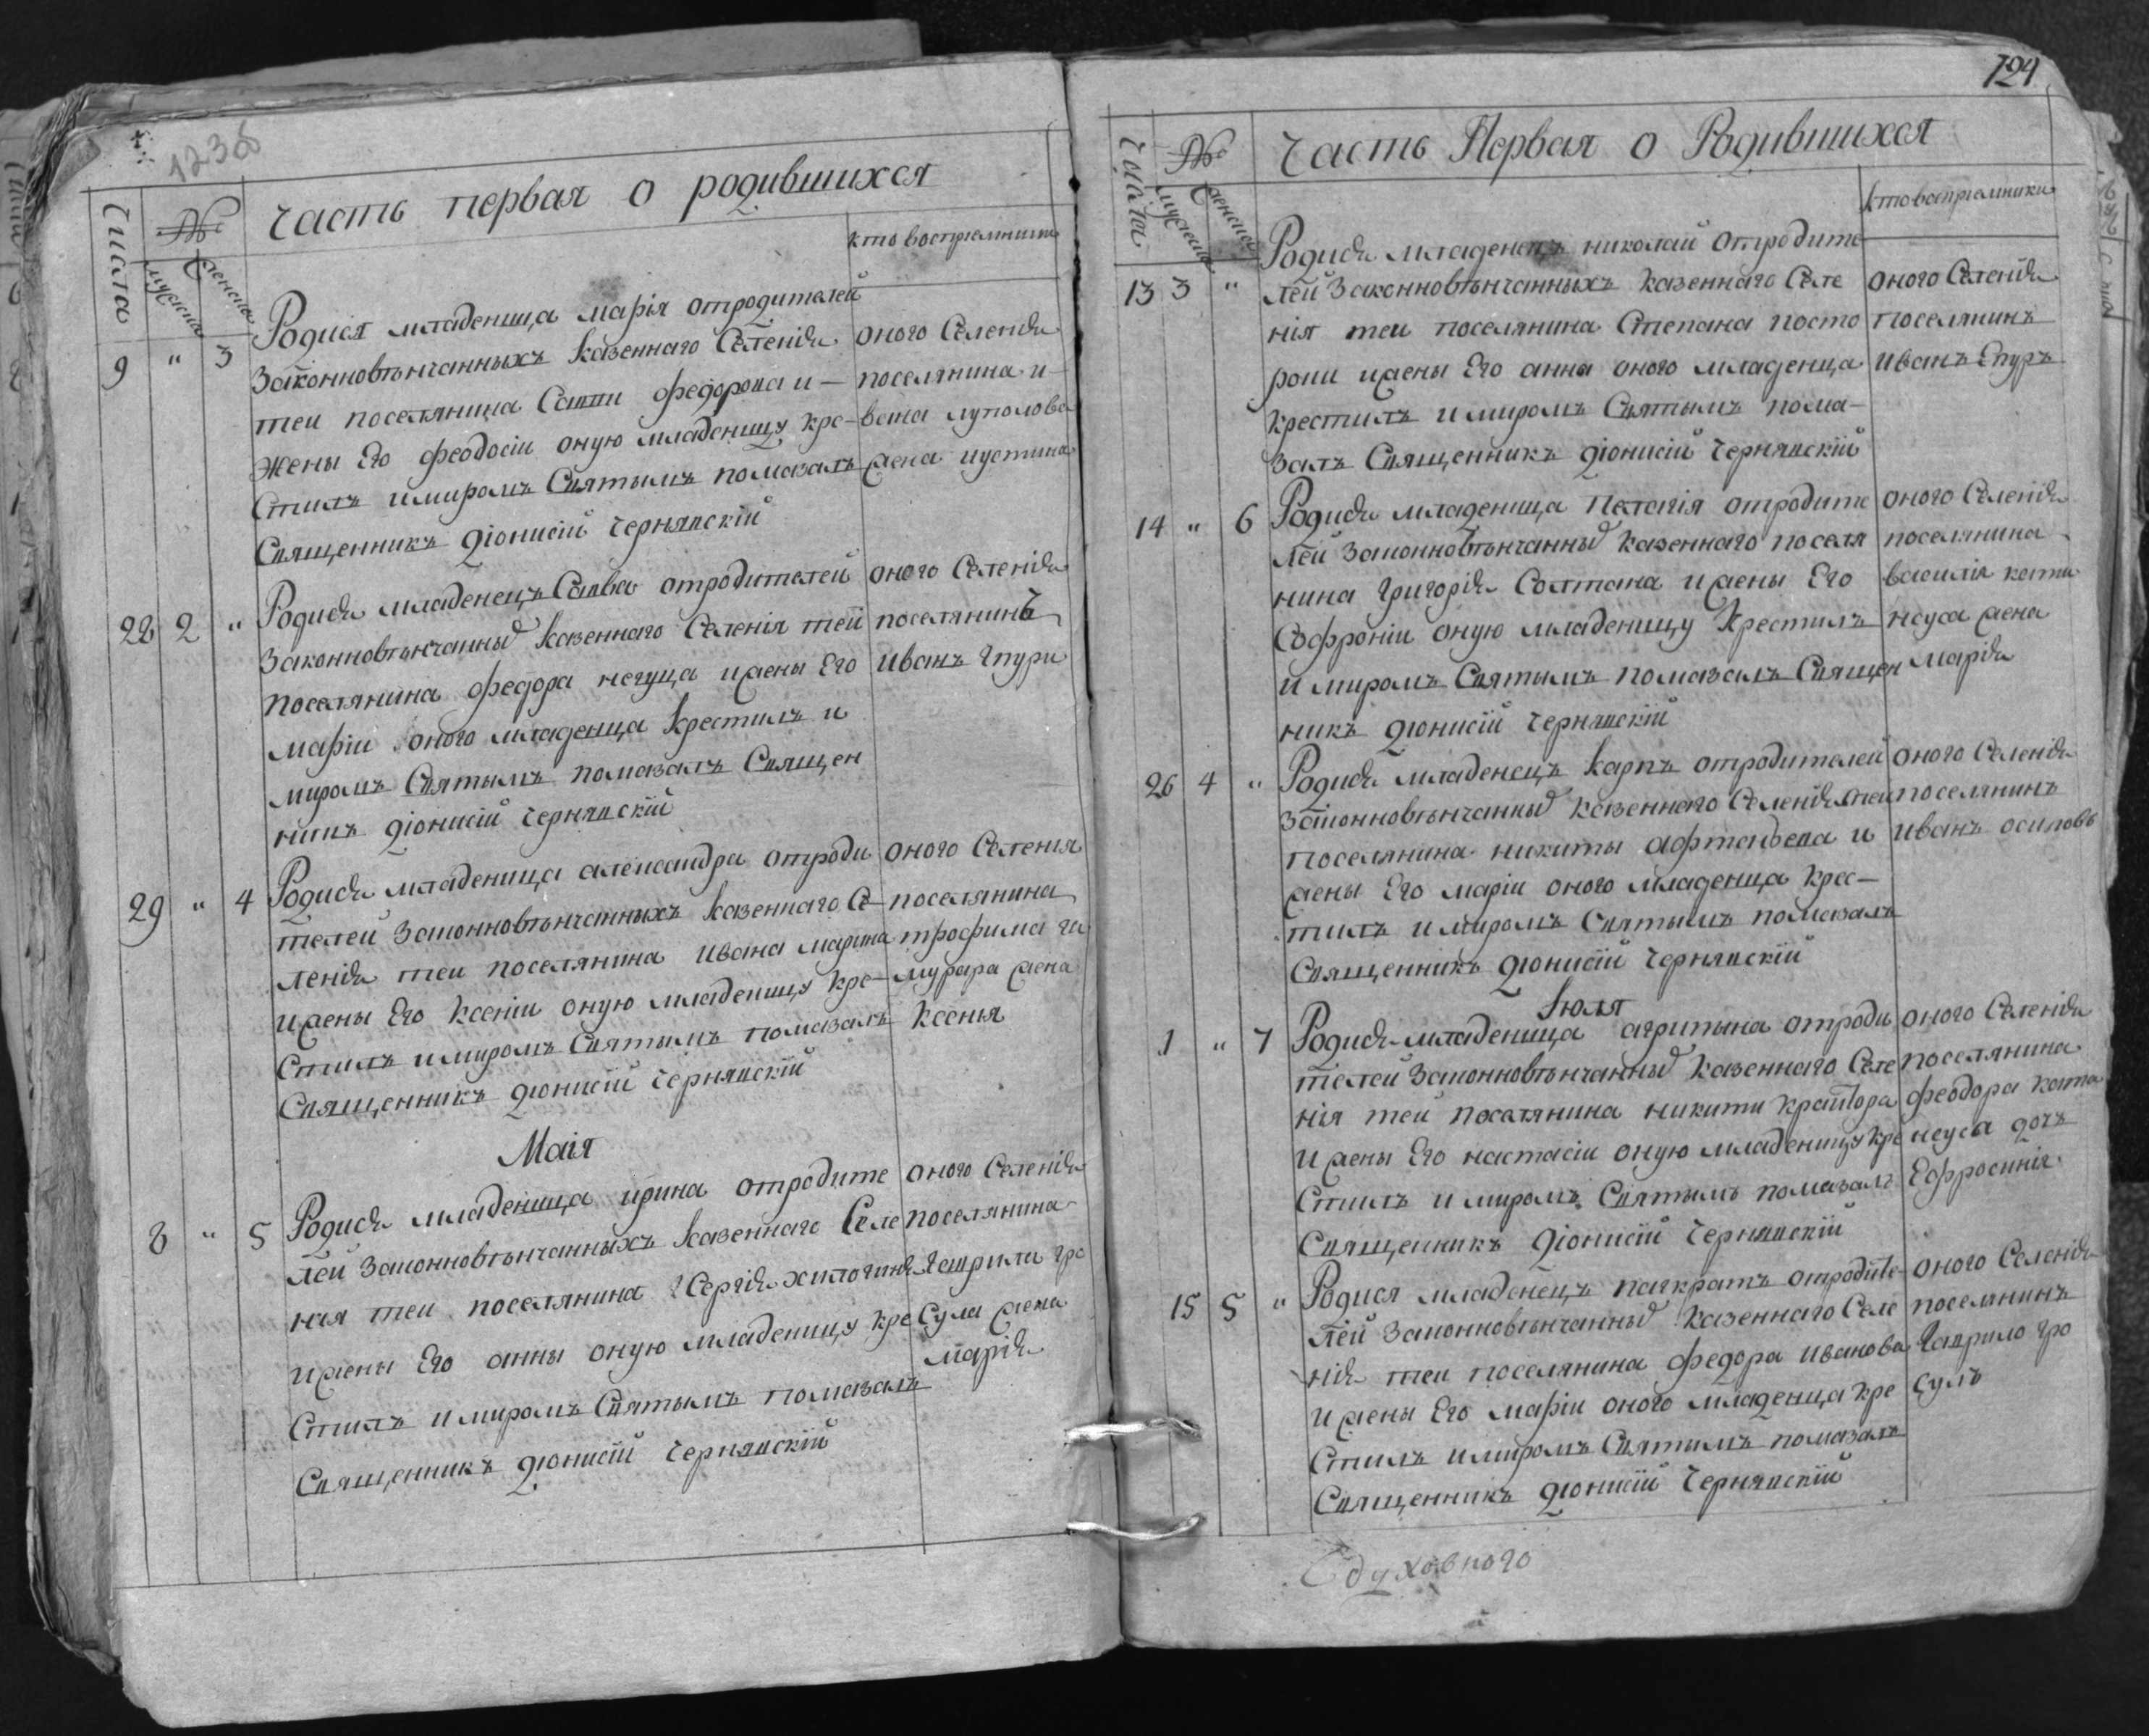 123об
Часть первая о родившихся
Числа
№
мужеска
женска
кто восприемники
9 " 3
Родися младеница марія отродителей
законновѣнчанныхъ казеннаго Селенія
теи поселянина Савви федорова и
жены Его феодосіи оную младеницу кре-
стилъ имиромъ Святымъ помазалъ
Священникъ діонисій Чернявскій
оного Селенія
поселянина и-
вана луполова
жена иустина
22 2 "
Родися младенецъ Савва отродителей
законновѣнчанныхъ казеннаго Селенія теи
поселянина федора негуца ижены Его
маріи оного младенца крестилъ и
миромъ Святымъ помазалъ Священ
никъ діонисій Чернявскій
оного Селенія
поселянинъ
иванъ
29 " 4
Родися младеница александра отроди
телей законновѣнчанныхъ казеннаго Се-
ленія теи поселянина ивана марина
ижены Его ксеніи оную младеницу кре-
стилъ имиромъ Святымъ помазалъ
Священникъ діонисій Чернявскій
оного Селенія
поселянина
трофима
жена
Ксенья
Маія
8 " 5
Родися младеница ирина отродите
лей законновѣнчанныхъ казеннаго Селе
нія теи поселянина Сергія
ижены Его анны оную младеницу кре
стилъ имиромъ Святымъ помазалъ
Священникъ діонисій Чернявскій
оного Селенія
поселянина
Гаврили гро
сула жена
марія
124
Часть Первая о Родившихся
Числа
№
мужеска
женска
кто восприемники
13 3 "
Родися младенецъ николай отродите
лей законновѣнчанныхъ казеннаго Селе
нія теи поселянина Степана посто
рони ижены Его анны оного младенца
крестилъ имиромъ Святымъ пома-
залъ Священникъ діонисій Чернявскій
оного Селенія
поселянинъ
иванъ Епуръ
14 " 6
Родися младеница Пелагія отродите
лей законновѣнчанныхъ казеннаго поселя
нина григорія Солтана ижены Его
Софроніи оную младеницу крестилъ
и миромъ Святымъ помазалъ Священ
никъ діонисій Чернявскій
оного Селенія
поселянина
василія кати
неуса жена
марія
26 4 "
Родися младенецъ карпъ отродителей
законновѣнчанныхъ казеннаго Селенія теи
поселянина никиты и
жены Его маріи оного младенца крес-
тилъ имиромъ Святымъ помазалъ
Священникъ діонисій Чернявскій
оного Селенія
поселянинъ
иванъ осиповъ
Іюля
1 " 7
Родися младеница агрипына отроди
телей законновѣнчанныхъ казеннаго Селе
нія теи поселянина никити
ижены Его настасіи оную младеницу кре
стилъ и миромъ Святымъ помазалъ
Священникъ діонисій Чернявскій
оного Селенія
поселянина
феодора кати
неуса дочъ
Ефросинія
15 5 "
Родися младенецъ панкратъ отродите-
лей законновѣнчанныхъ казеннаго Селе
нія теи поселянина федора иванова
ижены Его маріи оного младенца кре
стилъ имиромъ Святымъ помазалъ
Священникъ діонисій Чернявскій
оного Селенія
поселянинъ
Гаврило гро
сулъ
духовного